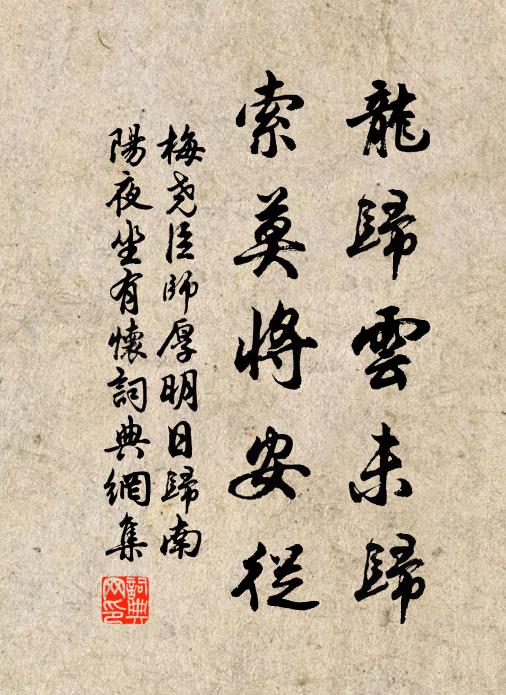 龍歸雲未歸
索莫將安從
梅堯臣師厚明日歸南
陽夜坐有懷詞典網集
詞典網印